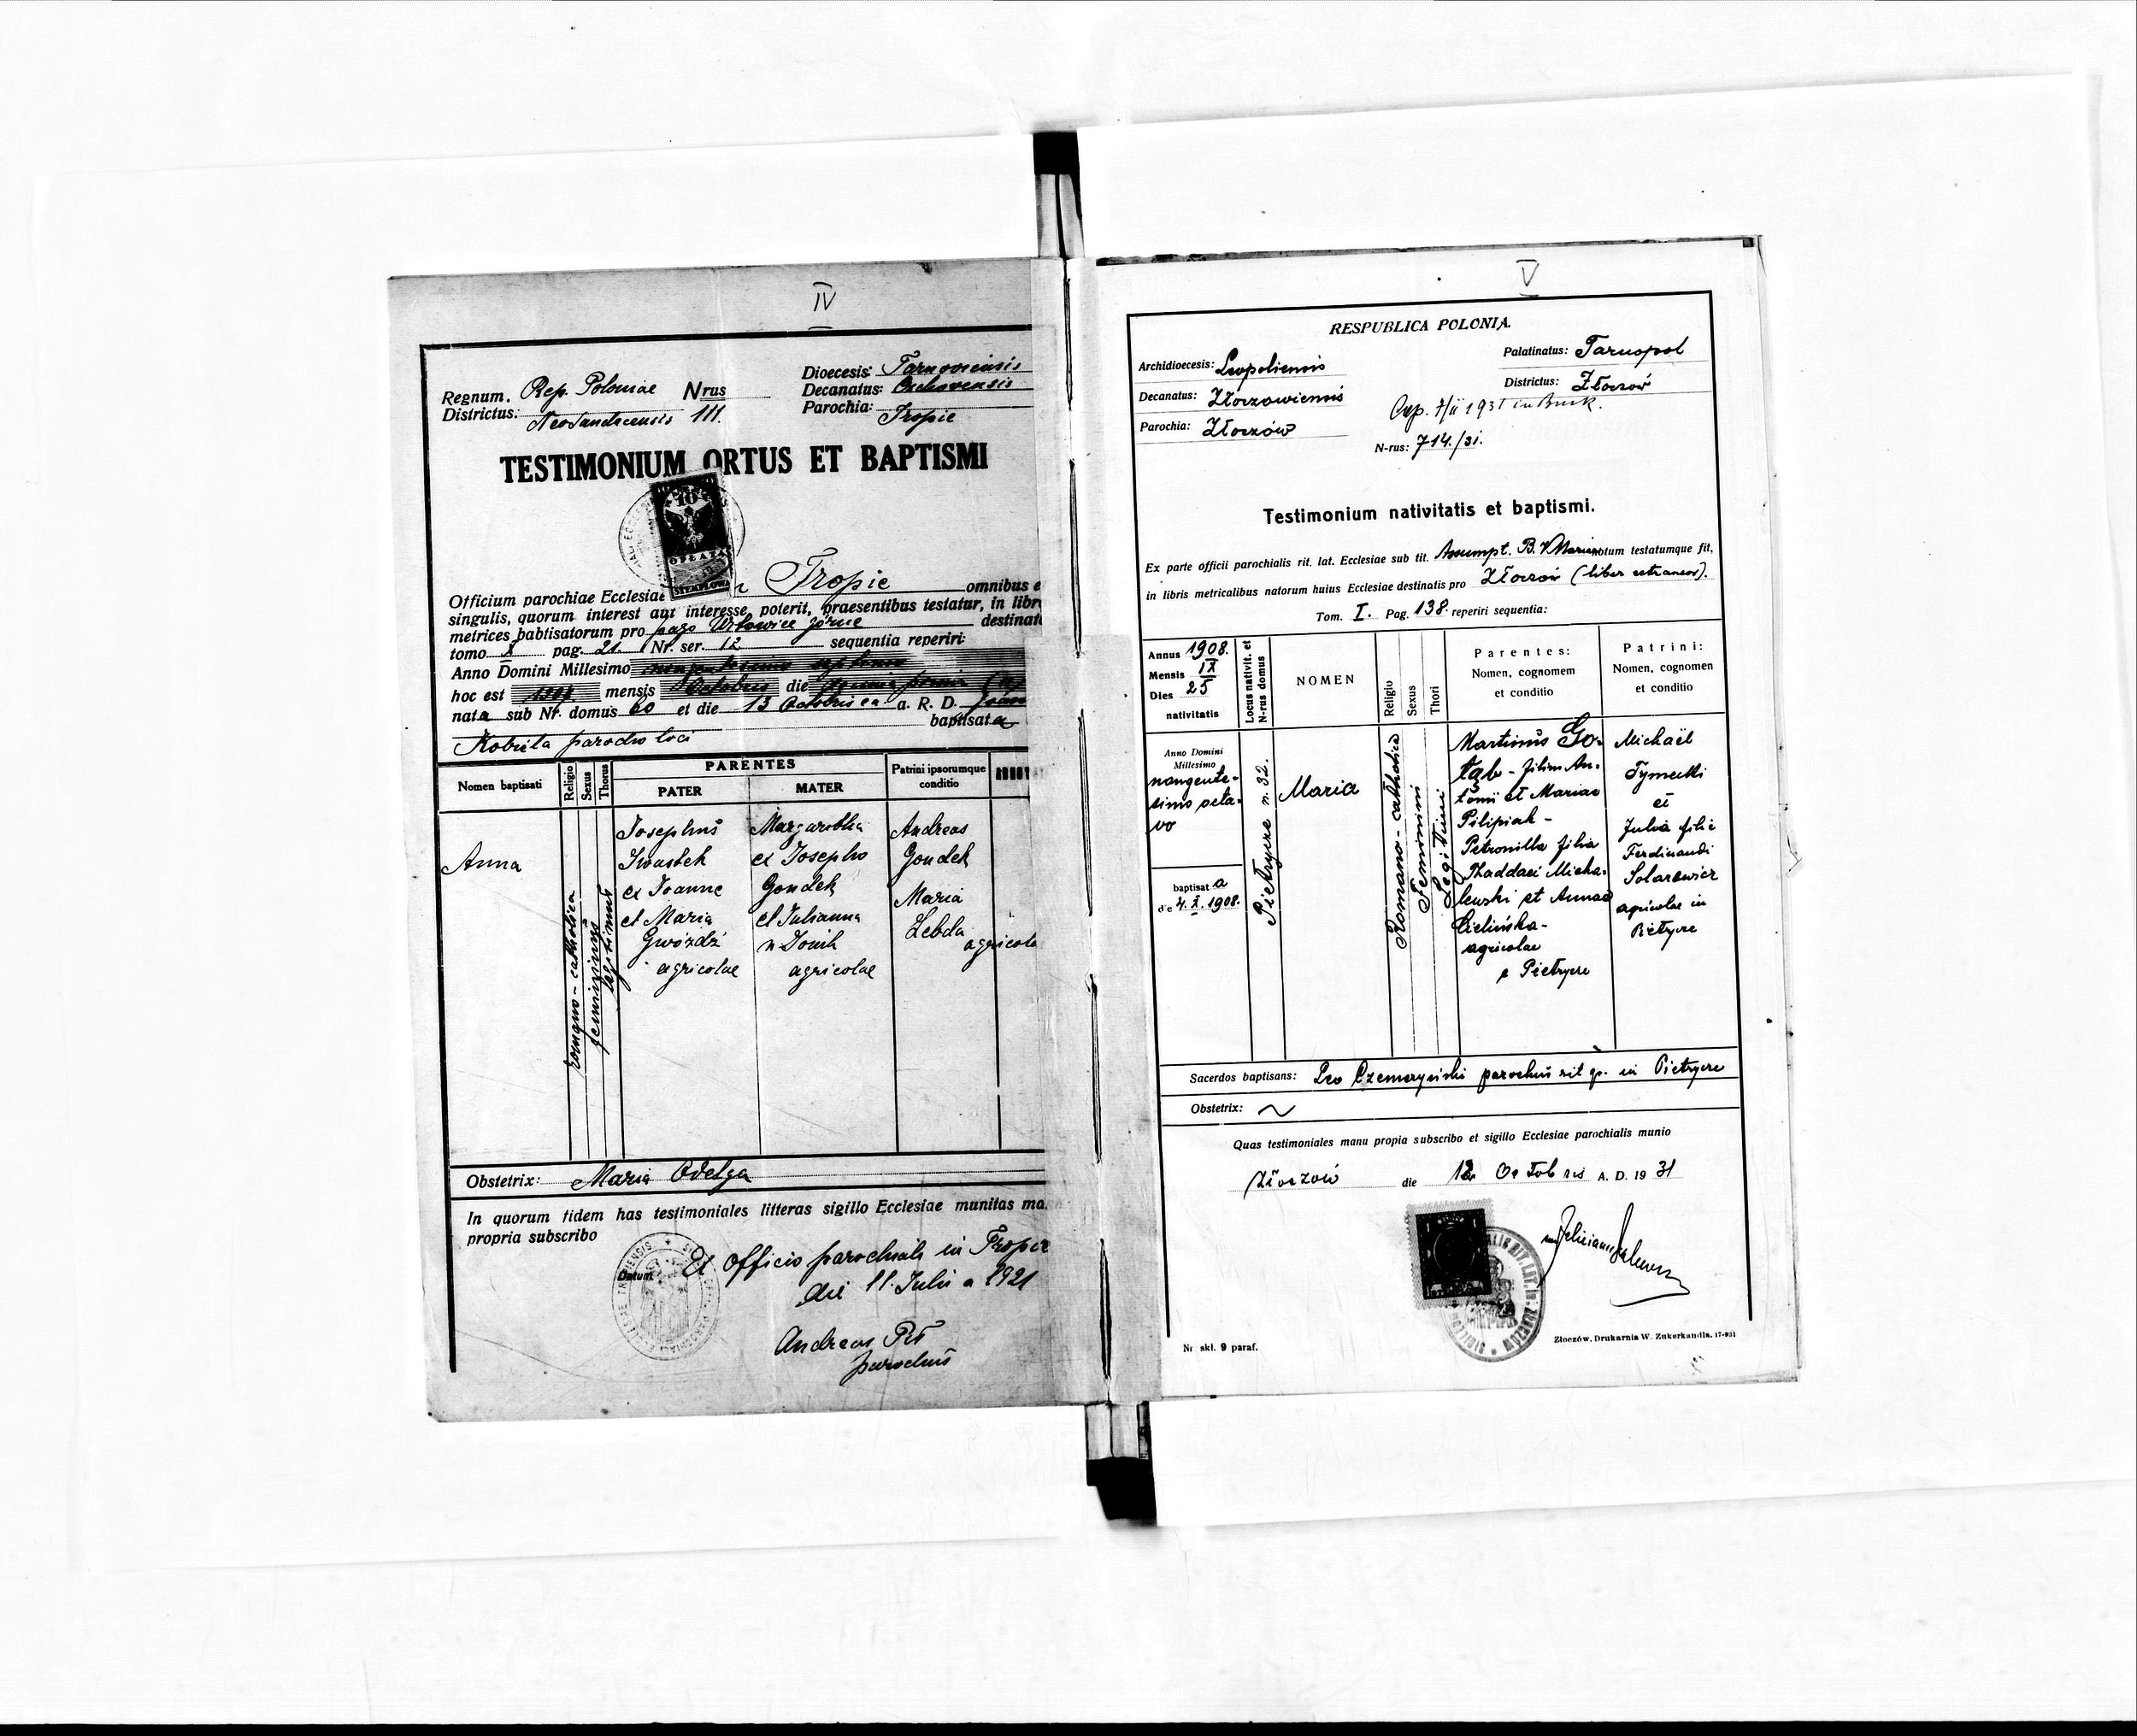 IV
Regnum. Rep. Poloniae Nrus
Districtus: Neosandecensis 111.
Dioecesis: Tarnoviensis
Decanatus:
Parochia: Tropie
TESTIMONIUM ORTUS ET BAPTISMI
10
OPŁATA
STEMPLOWA
Officium parochiae Ecclesiae Tropie omnibus e
singulis, quorum interest aut interesse poterit, praesentibus testatur, in libr
metrices babtisatorum pro pago destinat
tomo X pag. 21. Nr. ser. 12 sequentia reperiri:
Anno Domini Millesimo nongentesimo septimo
hoc est mensis Octobris die
nata sub Nr. domus 60 et die 13 Octobris ea a. R. D.
baptisata
parocho loci
Nomen baptisati
Religio
Sexus
Thorus
PARENTES
PATER
MATER
Patrini ipsorumque
conditio
Anna
romano-catholica
femininus
legitimus
Josephus
Iwastek
ex Joanne
et Maria
Gwóźdź
agricolae
Margaretha
ex Josepho
Gondek
et Julianna
agricolae
Andreas
Gondek
Maria
Zebda
agricola
Obstetrix: Maria Odelga
In quorum fidem has testimoniales litteras sigillo Ecclesiae munitas ma
propria subscribo
Datum Ex officio parochiali in Tropie
die 11. Julii a 1921
Andreas
parochus
V
RESPUBLICA POLONIA.
Archidioecesis: Leopoliensis
Decanatus: Złoczowiensis
Parochia: Złoczów
Palatinatus: Tarnopol
Districtus: Złoczów
Cop. 7/II 1931 in Busk.
N-rus: 714./31.
Testimonium nativitatis et baptismi.
Ex parte officii parochialis rit. lat. Ecclesiae sub tit. Assumpt. B. V. Mariae notum testatumque fit,
in libris metricalibus natorum huius Ecclesiae destinatis pro Złoczów (liber extraneor).
Tom. I. Pag. 138. reperiri sequentia:
Annus 1908.
Mensis IX
Dies 25
nativitatis
Locus nativit. et
N-rus domus
NOMEN
Religio
Sexus
Thori
Parentes:
Nomen, cognomem
et conditio
Patrini:
Nomen, cognomen
et conditio
Anno Domini
Millesimo
nongente-
simo octa-
vo
baptisat a
die 4. X. 1908.
Pietrycze n. 32.
Maria
Romano-catholica
Feminini
Legitimi
Martinus Go-
łąb - filius An-
tonii et Mariae
Pilipiak -
Petronilla filia
Thaddaei Micha-
lewski et Annae
Cielińska -
agricolae
e Pietrycze
Michaël
Tymecki
et
Julia filia
Ferdinandi
Solarewicz
agricolae in
Pietrycze
Sacerdos baptisans: Leo parochus rit gr. in Pietrycze
Obstetrix: ~
Quas testimoniales manu propia subscribo et sigillo Ecclesiae parochialis munio
Złoczów die 12 Octobris A. D. 19 31
Nr skł. 9 paraf.
Złoczów, Drukarnia W. Zukerkandla. 17-931